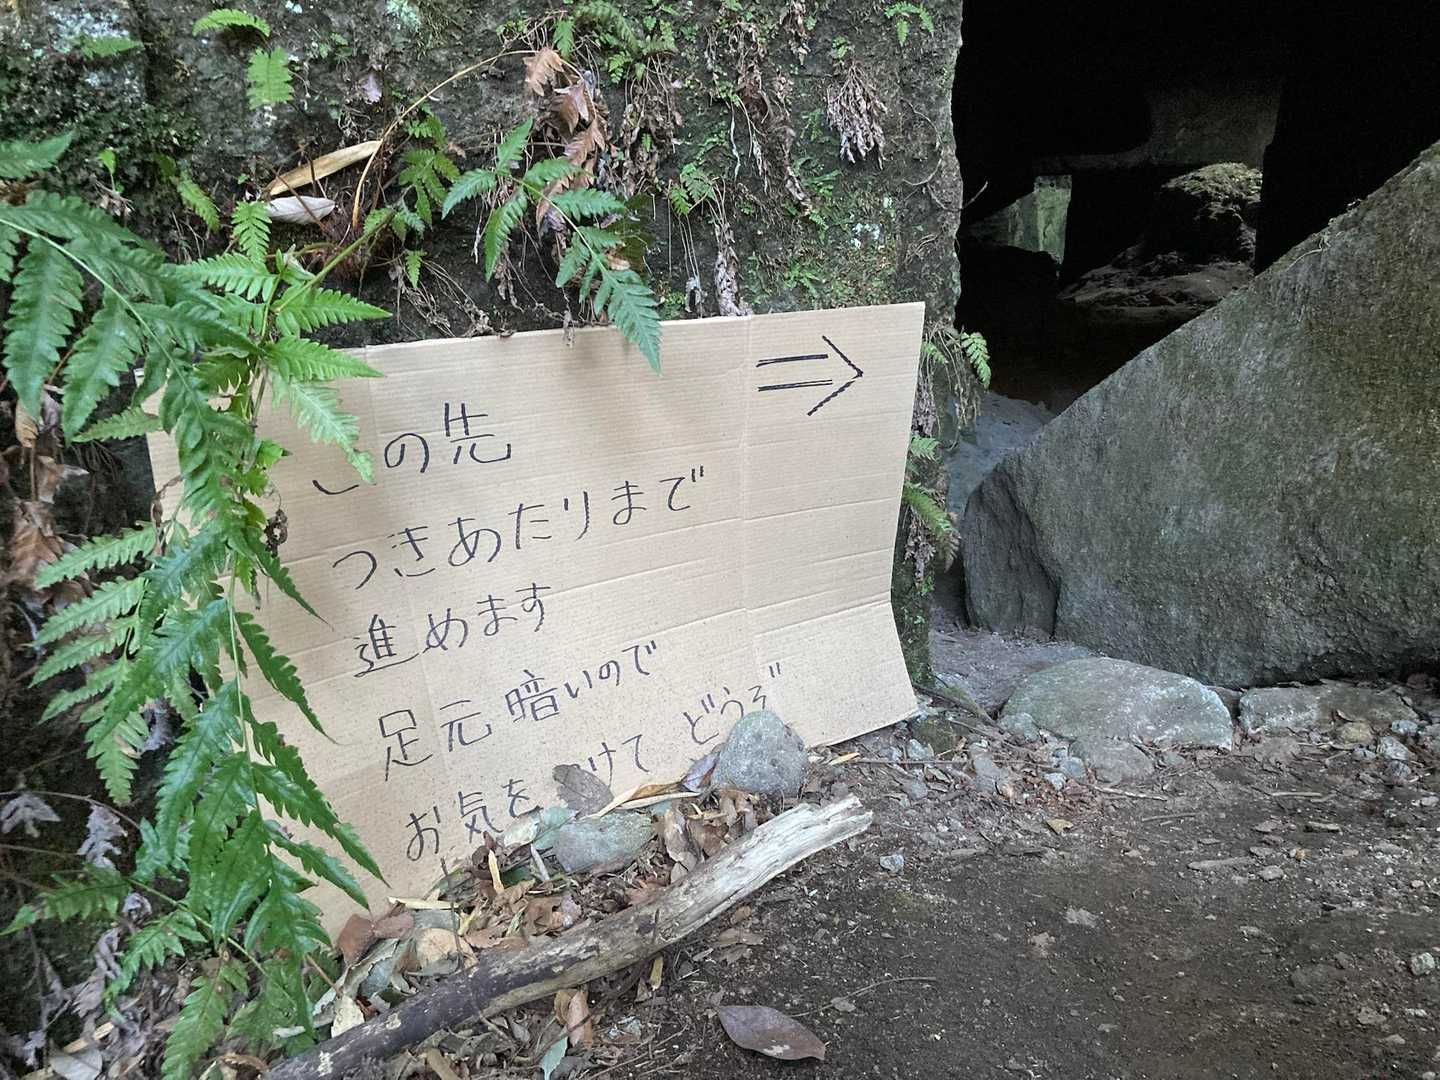 ⇒
この先
つきあたりまで
進めます
足元暗いので
お気をつけて どうぞ